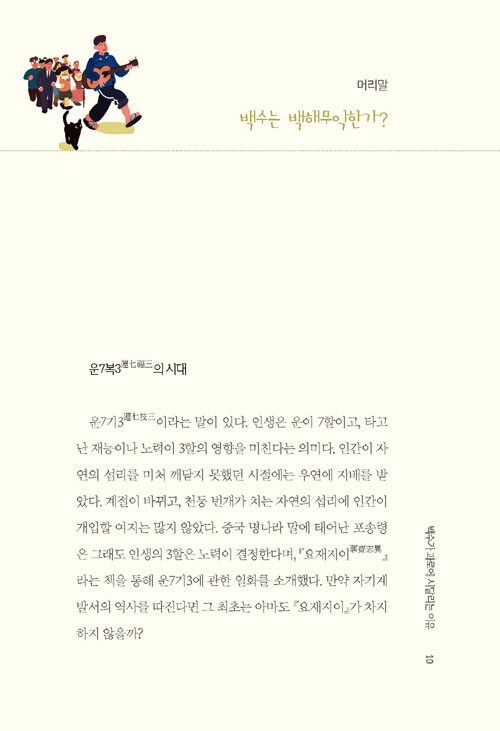 머리말
백수는 백해무익한가?
운7복3運七福三의 시대
운7기3運七技三이라는 말이 있다. 인생은 운이 7할이고, 타고
난 재능이나 노력이 3할의 영향을 미친다는 의미다. 인간이 자
연의 섭리를 미처 깨닫지 못했던 시절에는 우연에 지배를 받
았다. 계절이 바뀌고, 천둥 번개가 치는 자연의 섭리에 인간이
개입할 여지는 많지 않았다. 중국 명나라 말에 태어난 포송령
은 그래도 인생의 3할은 노력이 결정한다며, 『요재지이聊齋志異』
라는 책을 통해 운7기3에 관한 일화를 소개했다. 만약 자기계
발서의 역사를 따진다면 그 최초는 아마도 『요재지이』가 차지
하지 않을까?
백수가 과로에 시달리는 이유
10